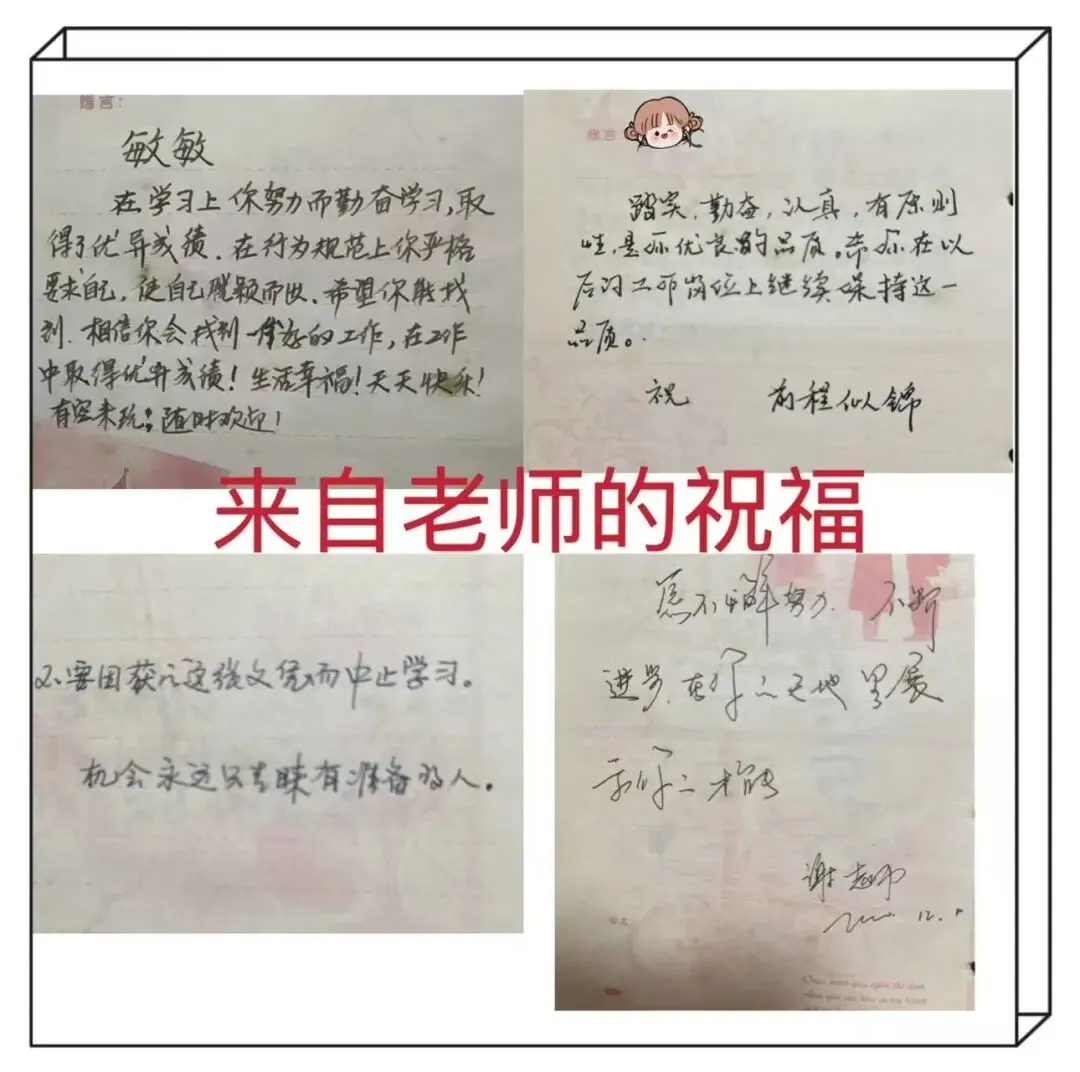 赠言：
敏敏
在学习上你努力而勤奋学习，取
得了优异成绩．在行为规范上你严格
要求自己，使自己脱颖而出．希望你能找
到．相信你会找到一份好的工作，在工作
中取得优异成绩！生活幸福！天天快乐！
有空来玩；随时欢迎！
赠言
踏实、勤奋，认真，有原则
性，是你优良的品质。希你在以
后的工作岗位上继续保持这一
品质。
祝 前程似锦
来自老师的祝福
不要因获得这张文凭而中止学习。
机会永远只青睐有准备的人。
愿不懈努力．不断
进步，在你的天地里展
示你的才能
谢老师
12.
Once more you open the door